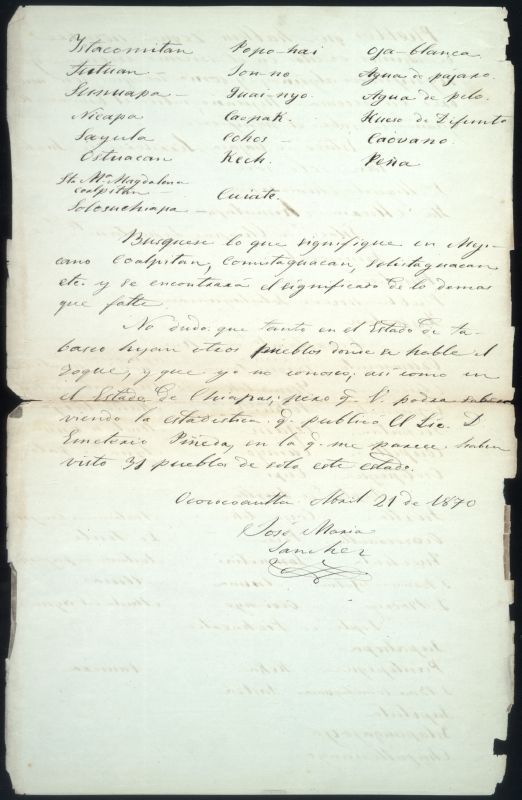 Istacomitan Popo-hai Oja-blanca
Tutuan Jon-no Agua de pajaro.
Sunuapa- Guai-nyo. Agua de pelo.
Nicapa Caopak. Hueso de Difunto
Sayula Cohos- Caovano.
Ostuacan Kech. Peña
Sta Ma. Magdalena
Coalpitan Cuiate.
Solosuchiapa
Busquese lo que signifique en Meji-
cano Coalpitan, Comistaguacan, Solistaguacan
etc. y se encontrará el significado de lo demas
que falte.
No dudo que tanto en el Estado de ta-
basco hijan otros pueblos donde se hable el
Zoque, y que yo no conosco; así como en
el Estado de Chiapas; pero q. V. podra saber
viendo la estadistica q. publicó El Lic. D
Emeterio Piñeda, en la q. me parece haber
visto 31 pueblos de solo este estado.
Ocozocoautla Abril 21 de 1870
José Maria
Sanchez